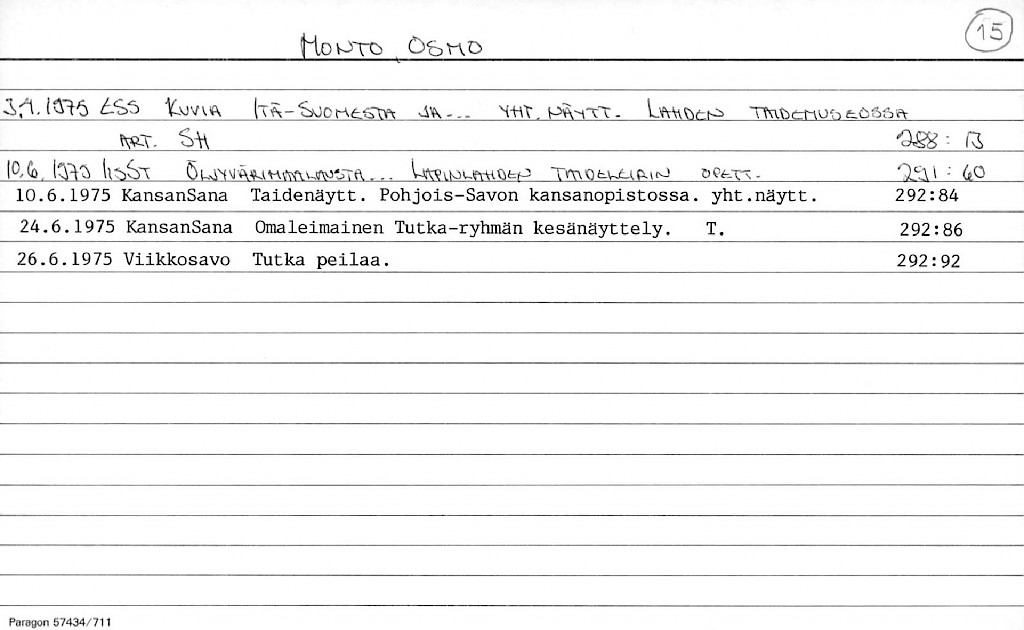 15
MONTO, OSMO
3.1.1975 ESS KUVIA ITÄ-SUOMESTA JA... YHT. NÄYTT. LAHDEN TAIDEMUSEOSSA
ART. SH 288:13
10.6.1975 IISST ÖLJYVÄRIMAALAUSTA... LAPINLAHDEN TAIDELEIRIN OPETT. 291:60
10.6.1975 KansanSana Taidenäytt. Pohjois-Savon kansanopistossa. yht.näytt. 292:84
24.6.1975 KansanSana Omaleimainen Tutka-ryhmän kesänäyttely. T. 292:86
26.6.1975 Viikkosavo Tutka peilaa. 292:92
Paragon 57434/711